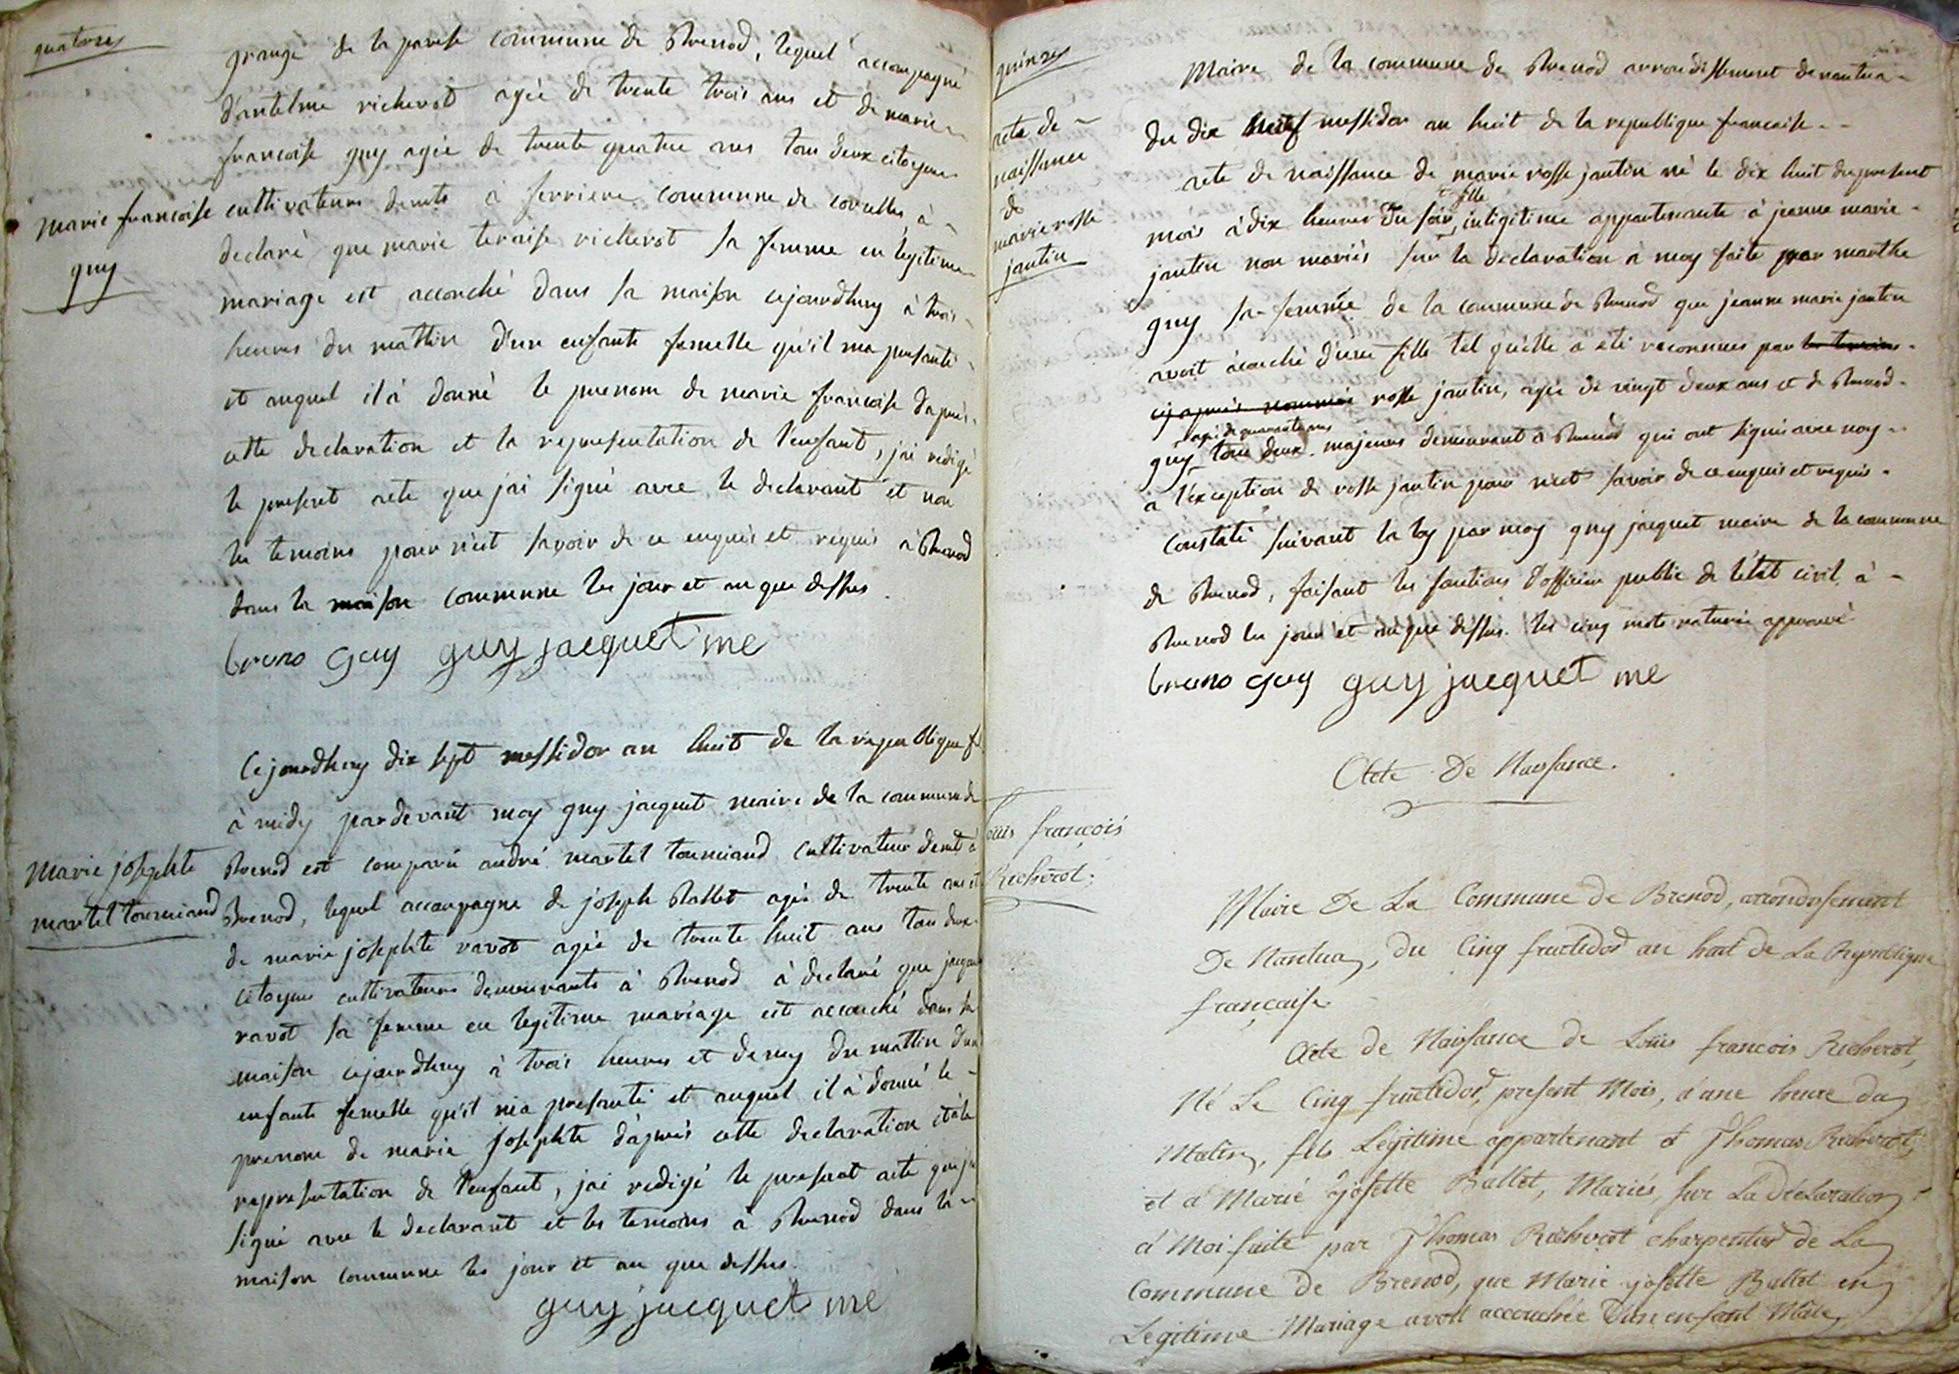 quatorze
grange de la parisse commune de Brenod, lequel accompagné
d'antelme richerot agée de trente trois ans et de marie
francoise guy agée de trente quatre ans tous deux citoyens
marie francoise
guy
cultivateurs demts a ferriere commune de corcelles à
declaré que marie teraise richerot sa femme en legitime
mariage est accouché dans sa maison cejourdhuy à trois
heures du mattin d'un enfante femelle qu'il ma presenté
et auquel il à donné le prenom de marie francoise d'aprés
cette declaration et la representation de l'enfant, j'ai redigé
le present acte que j'ai signé avec le declarant et non
les temoins pour n'ect savoir de ce enquis et requis à Brenod
dans la maison commune les jour et an que dessus.
bruno guy guy jacquet me
Cejourdhuy dix sept messidor an huit de la republique f
à midy pardevant moy guy jacquet maire de la commune de
marie josephte
martel tourniand
Brenod est comparu andré martel tourniand cultivateur demt à
Brenod, lequel accompagne de joseph Ballet agée de trente ans et
de marie josephte ravot agée de trente huit ans tou deux
citoyens cultivateurs demeurants à Brenod à declaré que jacqu
ravot sa femme en legitime mariage est accouché dans sa
maison cejourdhuy à trois heures et demy du mattin d'un
enfante femelle qu'il m'a presanté et auquel il à donné le
prenom de marie josephte d'aprés cette declaration et de la
representation de l'enfant, j'ai redigé le present acte que j'ai
signé avec le declarant et les temoins à Brenod dans la
maison commune les jour et an que dessus.
guy jacquet me
quinze
acte de
naissance
de
marie rosse
jantin
Maire de la commune de Brenod arrondissement de nantua
du dix neuf messidor an huit de la republique francaise
acte de naissance de marie rosse jantin né le dix huit du present
mois à dix heures du soir, fille inligitime appartenante à jeanne marie
jantin non mariés sur la declaration à moy faite par marthe
guy sa femme de la commune de Brenod que jeanne marie jantin
avoit acouché d'une fille tel qu'elle à eté reconnues par les temoins
cy aprés nommés rosse jantin, agée de vingt deux ans et de Brenod
agé de quarante ans
guy tous deux majeurs demeurant à Brenod qui ont signé avec moy
à l'exception de rosse jantin pour n'ect savoir de ce enquis et requis
Constaté suivant la loy par moy guy jacquet maire de la commune
de Brenod, faisant les fonctions d'officier public de l'état civil, à
Brenod les jour et an que dessus. les cinq mots raturés approuvé
bruno guy guy jacquet me
Acte De Naissance.
Louis françois
Richerot.
Maire De La Commune de Brenod, arrondissement
De Nantua, du Cinq fructidor an huit de La Republique
française
Acte de Naissance de Louis francois Richerot,
Né Le Cinq fructidor, present Mois, à une heure du
Matin, fils Légitimé appartenant à Thomas Richerot,
et à Marié josette Ballet, Mariés, sur La Declaration
à Moi faite par Thomas Richerot charpentier de La
Commune de Brenod, que Marie josette Ballet en
Légitime Mariage avoit accouchée d'un enfant Mâle,